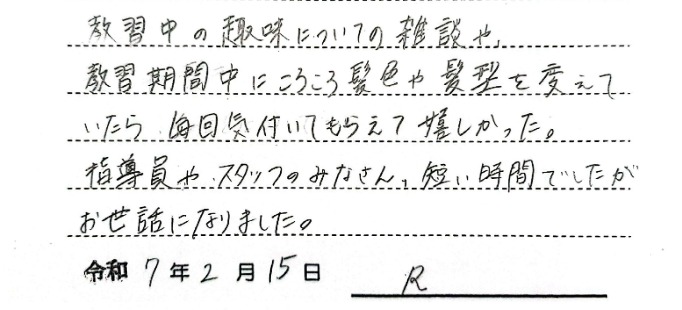 教習中の趣味についての雑談や、
教習期間中にころころ髪色や髪型を変えて
いたら、毎回気付いてもらえて嬉しかった。
指導員や、スタッフのみなさん、短い時間でしたが
お世話になりました。
令和7年2月15日 R